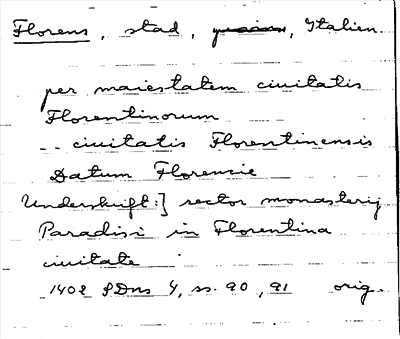 Florens, stad, Italien.
per maiestatem ciuitatis
Florentinorum
-- ciuitatis Florentinensis
Datum Florencie
Underskrift:] rector monasterij
Paradisi in Florentina
ciuitate
1402 SDns 4, ss. 90, 91 orig.